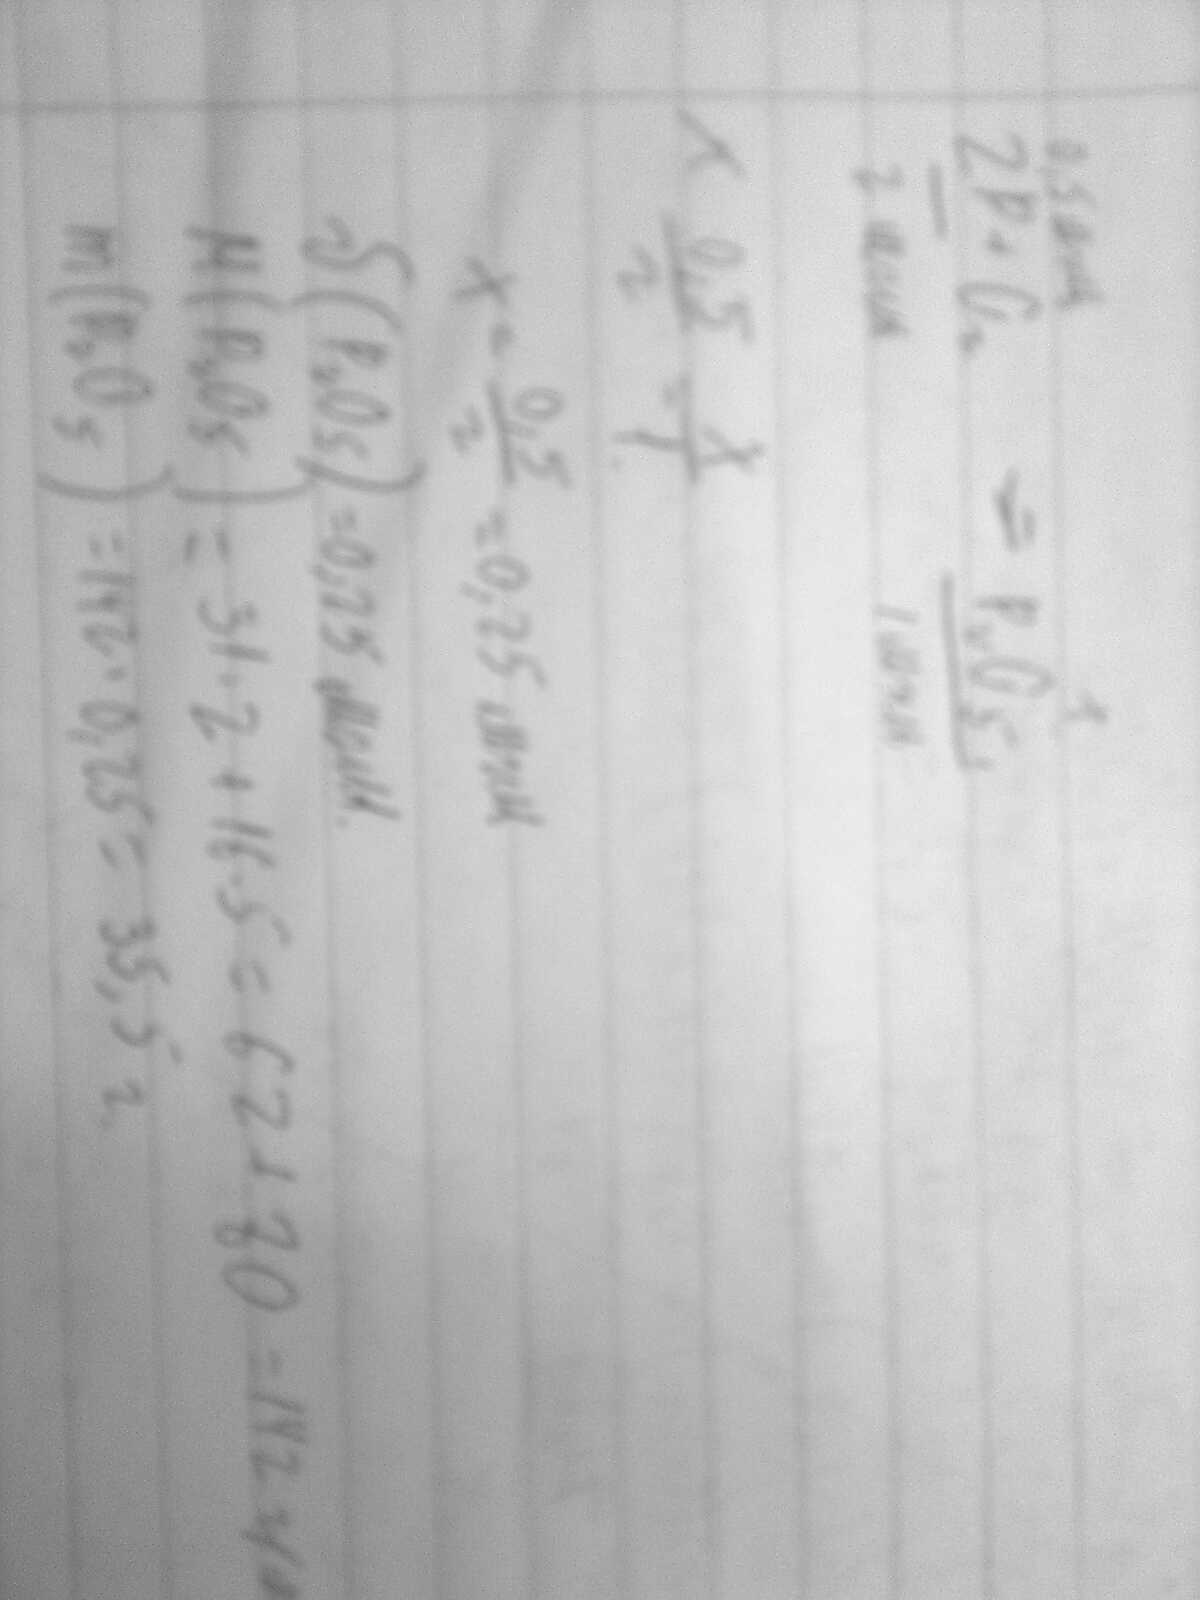 0,5 моль x
2P + O₂ → = P₂O₅
2 моль 1 моль
x 0,5/2 = x/1
x = 0,5/2 = 0,25 моль
(P₂O₅) = 0,25 моль.
M(P₂O₅) = 31·2 + 16·5 = 62 + 80 = 142
m(P₂O₅) = 142·0,25 = 35,5 г